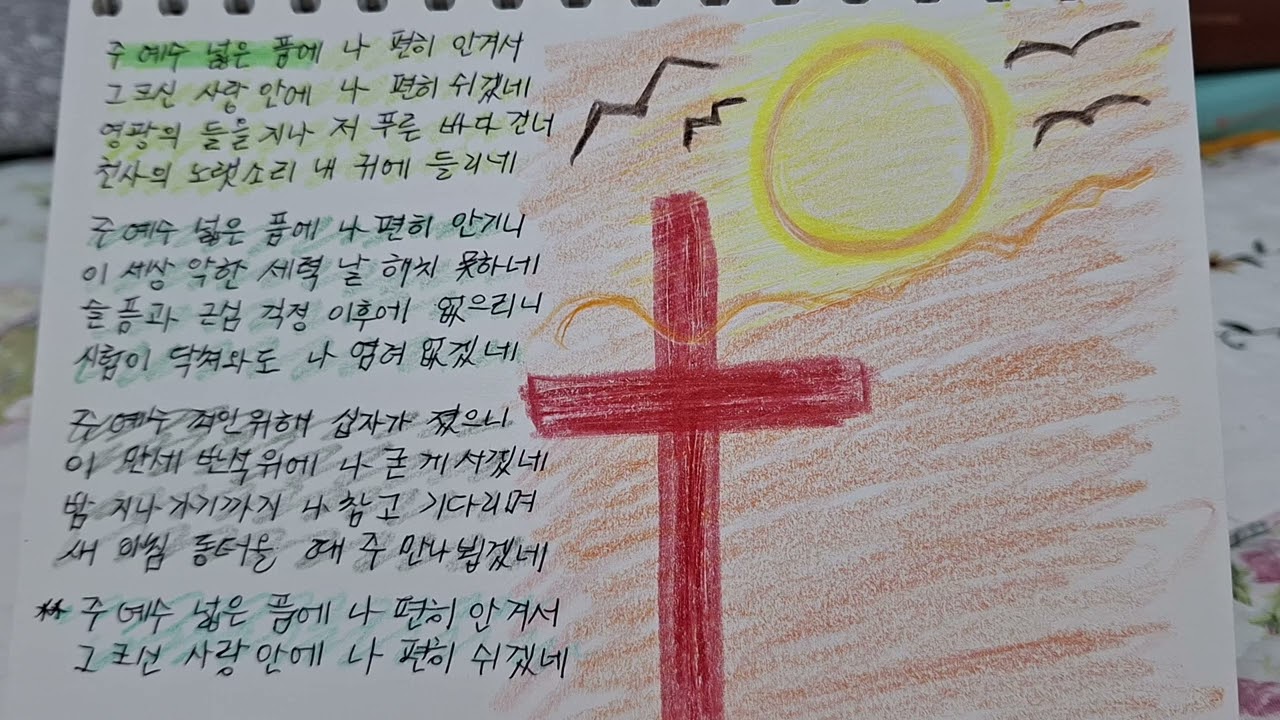 주 예수 넓은 품에 나 편히 안겨서
그 크신 사랑 안에 나 편히 쉬겠네
영광의 들을 지나 저 푸른 바다 건너
천사의 노랫소리 내 귀에 들리네
주 예수 넓은 품에 나 편히 안기니
이 세상 악한 세력 날 해치 못하네
슬픔과 근심 걱정 이후에 없으리니
시련이 닥쳐와도 나 염려 없겠네
주 예수 죄인위해 십자가 졌으니
이 만세 반석위에 나 굳게 서겠네
밤 지나가기까지 나 참고 기다리며
새 아침 동터올 때 주 만나 뵙겠네
** 주 예수 넓은 품에 나 편히 안겨서
그 크신 사랑 안에 나 편히 쉬겠네